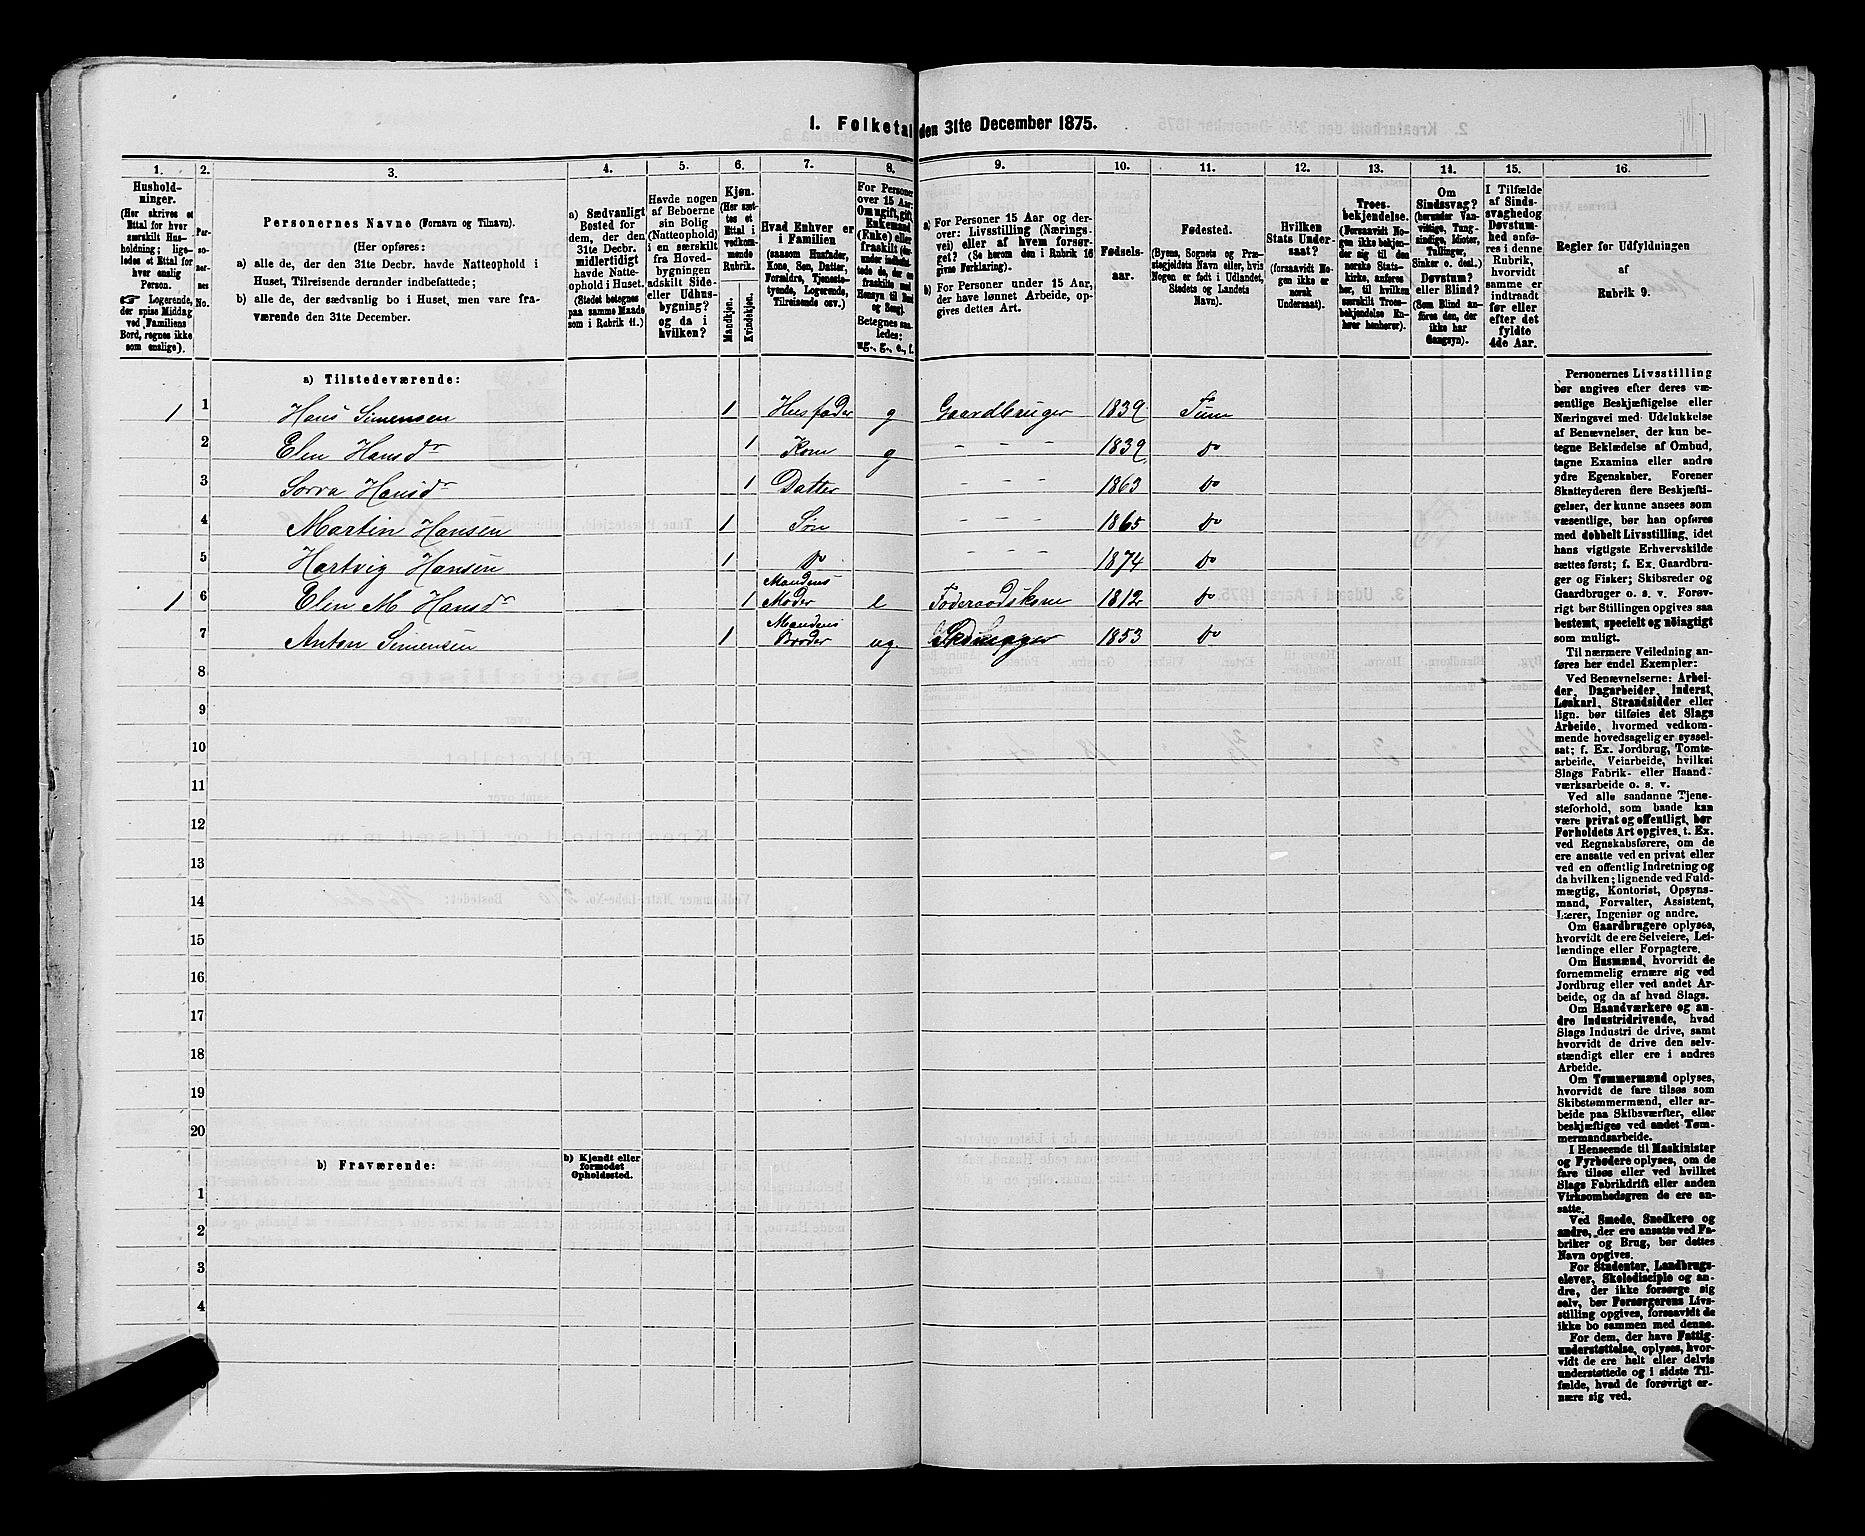 1. Folketal den 31te December 1875.
1. 2. 3. 4. 5. 6. 7. 8. 9. 10. 11. 12. 13. 14. 15. 16.
Hushold-
ninger.
(Her skrives et
Ettal for hver
særskilt Hus-
holdning; lige-
ledes et Ettal for
hver enslig
Person.
☞ Logerende,
der spise Middag
ved Familiens
Bord, regnes ikke
som enslige).
Per-
so-
ner-
nes
No.
Personernes Navne (Fornavn og Tilnavn).
(Her opføres:
a) alle de, der den 31te Decbr. havde Natteophold i
Huset, Tilreisende derunder indbefattede;
b) alle de, der sædvanlig bo i Huset, men vare fra-
værende den 31te December.
a) Sædvanligt
Bosted for
dem, der den
31te Decbr.
midlertidigt
havde Natte-
ophold i Huset.
(Stedet betegnes
paa samme Maade
som i Rubrik 11.)
Havde nogen
af Beboerne
sin Bolig
(Natteophold)
i en særskilt
fra Hoved-
bygningen
adskilt Side-
eller Udhus-
bygning?
og da i
hvilken?
Kjøn.
(Her sæt-
tes et
Ettal i
vedkom-
mende
Rubrik.
Mandkjøn.
Kvindekjøn.
Hvad Enhver er
i Familien
(saasom Husfader,
Kone, Søn, Datter,
Forældre, Tjeneste-
tyende, Logerende,
Tilreisende osv.)
For Personer
over 15 Aar:
Om ugift, gift,
Enkemand
(Enke) eller
fraskilt
Betegnes saa-
ledes:
ug., g., e., f.
a) For Personer 15 Aar og der-
over: Livsstilling (Nærings-
vei) eller af hvem forsør-
get? (Se herom den i Rubrik 16
givne Forklaring).
b) For Personer under 15 Aar,
der have lønnet Arbeide, op-
gives dettes Art.
Fødsels-
aar.
Fødested.
(Byens, Sognets og Præ-
stegjeldets Navn eller, hvis
Nogen er født i Udlandet,
Stedets og Landets
Navn).
Hvilken
Stats Under-
saat?
(forsaavidt No-
gen ikke er
norsk
Undersaat).
Troes-
bekjendelse.
(Forsaavidt No-
gen ikke bekjen-
der sig til den
norske Stats-
kirke, anføres
her, til hvilken
særskilt Troes-
bekjendelse En-
hver henhører).
Om
Sindssvag?
(herunder Van-
vittige, Tung-
sindige, Idioter,
Tullinger,
Sinker o. desl.)
Døvstum?
eller Blind?
(Som Blind an-
føres den, der
ikke har
Gangsyn).
I Tilfælde
af Sinds-
svaghed og
Døvstum-
hed anfø-
res i denne
Rubrik,
hvorvidt
samme er
indtraadt
før eller
efter det
fyldte
4de Aar.
Regler for Udfyldningen
af
Rubrik 9.
a) Tilstedeværende:
1 1 Hans Simensen 1 Husfader g Gaardbruger 1839 Tune
2 Elen Hansdr 1 Kone g - - - 1839 Do
3 Sorva Hansdr 1 Datter - - - 1863 Do
4 Martin Hansen 1 Søn - - - 1865 Do
5 Hartvig Hansen 1 Do - - - 1874 Do
1 6 Elen M Hansdr 1 Mandens Moder e Føderaadskone 1812 Do
7 Anton Simensen 1 Mandens Broder ug. 1853 Do
8
9
10
11
12
13
14
15
16
17
18
19
20
b) Fraværende:
b) Kjendt eller
formodet
Opholdssted.
1
2
3
4
Personernes Livsstilling
bør angives efter deres væ-
sentlige Beskjæftigelse eller
Næringsvei med Udelukkelse
af Benævnelser, der kun be-
tegne Beklædelse af Ombud,
tagne Examina eller andre
ydre Egenskaber. Forener
Skatteyderen flere Beskjæfti-
gelser, der kunne ansees som
væsentlige, bør han opføres
med dobbelt Livsstilling, idet
hans vigtigste Erhvervskilde
sættes først; f. Ex. Gaardbru-
ger og Fisker; Skibsreder og
Gaardbruger o. s. v. Forøv-
rigt bør Stillingen opgives saa
bestemt, specielt og nøiagtigt
som muligt.
Til nærmere Veiledning an-
føres her endel Exempler:
Ved Benævnelserne: Arbei-
der, Dagarbeider, Inderst,
Løskarl, Strandsidder eller
lign. bør tilføies det Slags
Arbeide, hvormed vedkom-
mende hovedsagelig er syssel-
sat; f. Ex. Jordbrug, Tomte-
arbeide, Veiarbeide, hvilket
Slags Fabrik- eller Haand-
værksarbeide o. s. v.
Ved alle saadanne Tjene-
steforhold, som baade kan
være privat og offentligt, bør
Forholdets Art opgives, t. Ex.
ved Regnskabsførere, om de
ere ansatte ved en privat eller
ved en offentlig Indretning og
da hvilken; lignende ved Fuld-
mægtig, Kontorist, Opsyns-
mand, Forvalter, Assistent,
Lærer, Ingeniør og andre.
Om Gaardbrugere oplyses,
hvorvidt de ere Selveiere, Lei-
lændinge eller Forpagtere.
Om Husmænd, hvorvidt de
fornemmelig ernære sig ved
Jordbrug eller ved andet Ar-
beide, og da af hvad Slags.
Om Haandværkere og an-
dre Industridrivende, hvad
Slags Industri de drive, samt
hvorvidt de drive den selv-
stændigt eller ere i andres
Arbeide.
Om Tømmermænd oplyses,
hvorvidt de fare tilsøs som
Skibstømmermænd, eller ar-
beide paa Skibsværfter, eller
beskjæftiges ved andet Tøm-
mermandsarbeide.
I Henseende til Maskinister
og Fyrbødere oplyses, om de
fare tilsøs eller ved hvilket
Slags Fabrikdrift eller anden
Virksomhedsgren de ere an-
satte.
Ved Smede, Snedkere og
andre, der ere ansatte ved Fa-
briker og Brug, bør dettes
Navn opgives.
For Studenter, Landbrugs-
elever, Skoledisciple og an-
dre, der ikke forsørge sig
selv, bør Forsørgerens Livs-
stilling opgives, forsaavidt de
ikke bo sammen med denne.
For dem, der have Fattig-
understøttelse, oplyses, hvor-
vidt de ere helt eller delvis
understøttede og i sidste Til-
fælde, hvad de forøvrigt er-
nære sig ved.